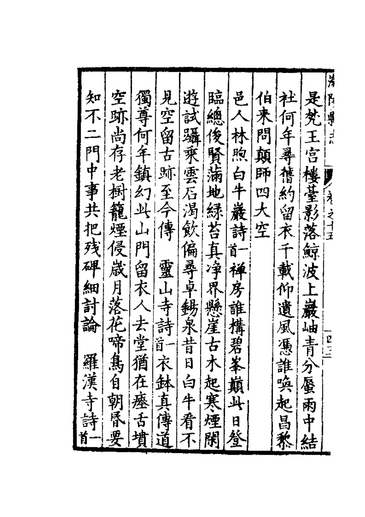 潮陽縣志 卷之十五
是梵王宫樓臺影落鯨波上巖岫青分蜃雨中結
社何年尋舊約留衣千載仰遺風憑誰喚起昌黎
伯來問顛師四大空
邑人林煦白牛巖詩一首禪房誰搆碧峯巔此日登
臨總後賢滿地綠苔真净界懸崖古木起寒煙閑
遊試躡乘雲屐渴飲偏尋卓錫泉昔日白牛看不
見空留古跡至今傳 靈山寺詩一首衣鉢真傳道
獨尊何年鎮幻此山門留衣人去堂猶在瘞舌墳
空跡尚存老樹籠煙侵歲月落花啼鳥自朝昏要
知不二門中事共把残碑細討論 羅漢寺詩一首